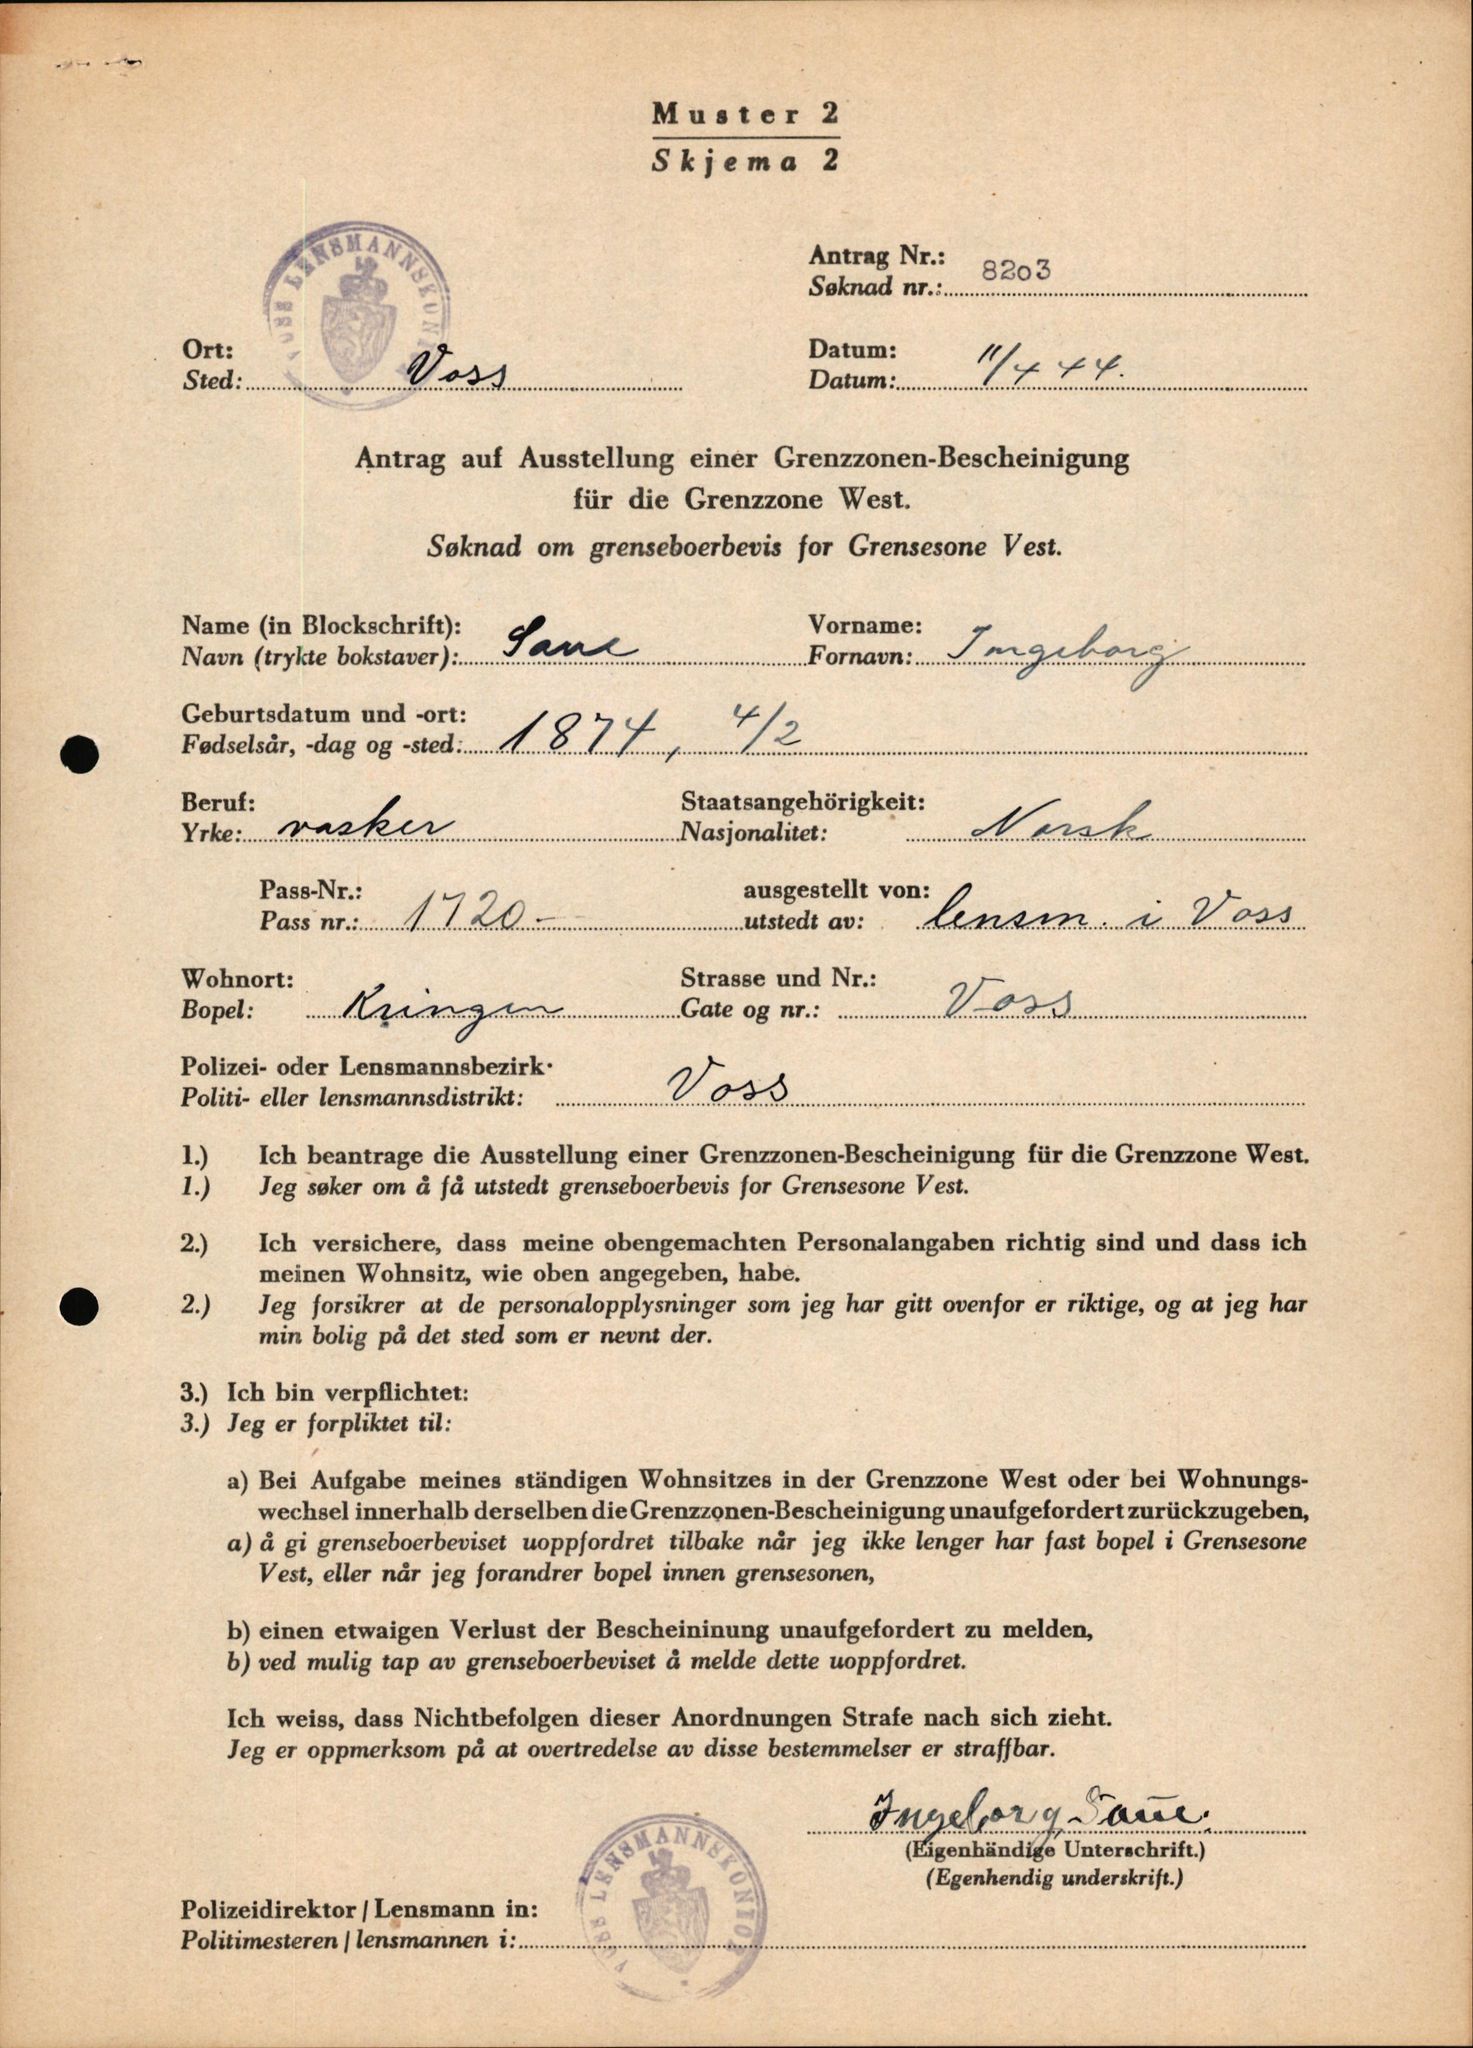 Muster 2
Skjema 2
VOSS LENSMANNSKONT
Antrag Nr.:
Søknad nr.: 8203
Ort:
Sted: Voss
Datum:
Datum: 11/4 44.
Antrag auf Ausstellung einer Grenzzonen-Bescheinigung
für die Grenzzone West.
Søknad om grenseboerbevis for Grensesone Vest.
Name (in Blockschrift):
Navn (trykte bokstaver): Saue
Vorname:
Fornavn: Ingeborg
Geburtsdatum und -ort:
Fødselsår, -dag og -sted: 1874, 4/2
Beruf:
Yrke: vasker
Staatsangehörigkeit:
Nasjonalitet: Norsk
Pass-Nr.:
Pass nr.: 1720-
ausgestellt von:
utstedt av: lensm. i Voss
Wohnort:
Bopel: Kringen
Strasse und Nr.:
Gate og nr.: Voss
Polizei- oder Lensmannsbezirk·
Politi- eller lensmannsdistrikt: Voss
1.) Ich beantrage die Ausstellung einer Grenzzonen-Bescheinigung für die Grenzzone West.
1.) Jeg søker om å få utstedt grenseboerbevis for Grensesone Vest.
2.) Ich versichere, dass meine obengemachten Personalangaben richtig sind und dass ich
meinen Wohnsitz, wie oben angegeben, habe.
2.) Jeg forsikrer at de personalopplysninger som jeg har gitt ovenfor er riktige, og at jeg har
min bolig på det sted som er nevnt der.
3.) Ich bin verpflichtet:
3.) Jeg er forpliktet til:
a) Bei Aufgabe meines ständigen Wohnsitzes in der Grenzzone West oder bei Wohnungs-
wechsel innerhalb derselben die Grenzzonen-Bescheinigung unaufgefordert zurückzugeben,
a) å gi grenseboerbeviset uoppfordret tilbake når jeg ikke lenger har fast bopel i Grensesone
Vest, eller når jeg forandrer bopel innen grensesonen,
b) einen etwaigen Verlust der Bescheininung unaufgefordert zu melden,
b) ved mulig tap av grenseboerbeviset å melde dette uoppfordret.
Ich weiss, dass Nichtbefolgen dieser Anordnungen Strafe nach sich zieht.
Jeg er oppmerksom på at overtredelse av disse bestemmelser er straffbar.
Ingeborg Saue.
(Eigenhändige Unterschrift.)
(Egenhendig underskrift.)
VOSS LENSMANNSKONTOR
Polizeidirektor / Lensmann in:
Politimesteren / lensmannen i: